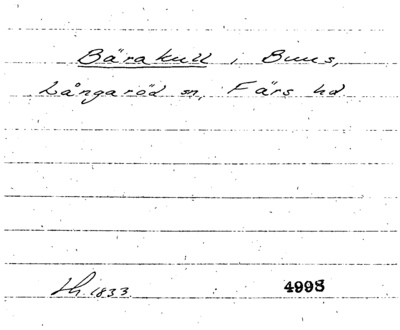 Bärakull i Buus,
Långaröd sn, Färs hd
Lh. 1833. 4998